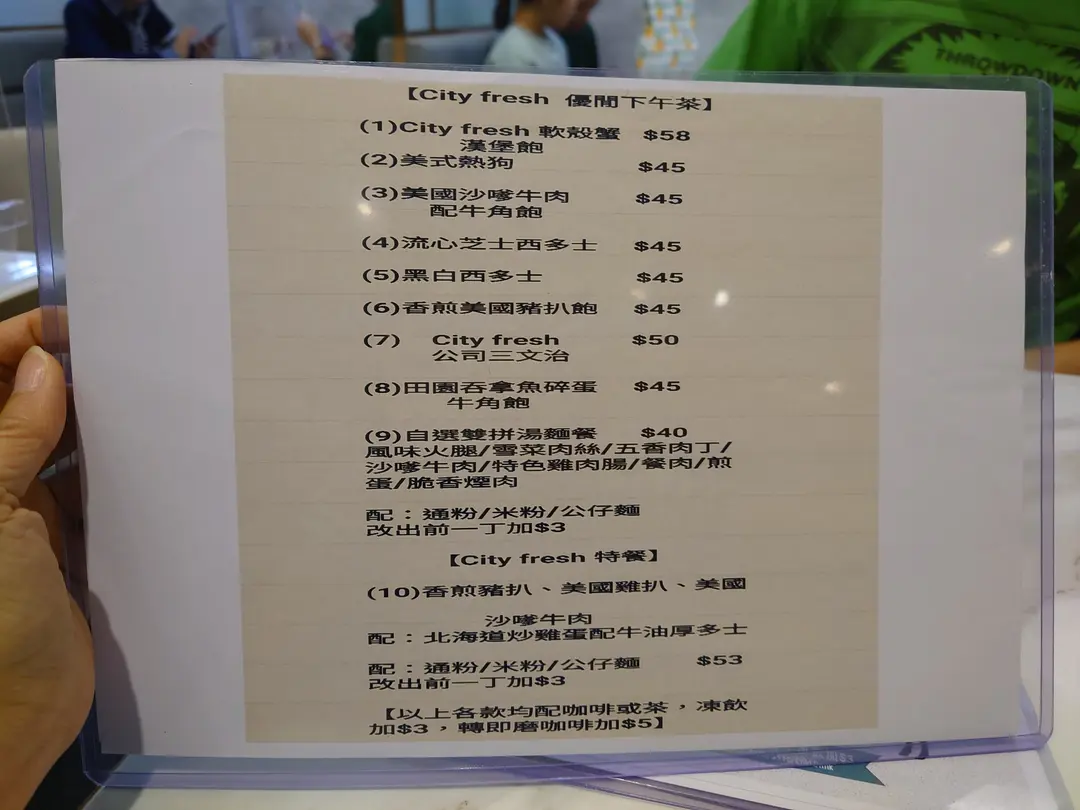 THROWDOWN
【City fresh 優閒下午茶】
(1)City fresh 軟殼蟹 $58
漢堡飽
(2)美式熱狗 $45
(3)美國沙嗲牛肉 $45
配牛角飽
(4)流心芝士西多士 $45
(5)黑白西多士 $45
(6)香煎美國豬扒飽 $45
(7) City fresh $50
公司三文治
(8)田園吞拿魚碎蛋 $45
牛角飽
(9)自選雙拼湯麵餐 $40
風味火腿/雪菜肉絲/五香肉丁/
沙嗲牛肉/特色雞肉腸/餐肉/煎
蛋/脆香煙肉
配：通粉/米粉/公仔麵
改出前一丁加$3
【City fresh 特餐】
(10)香煎豬扒、美國雞扒、美國
沙嗲牛肉
配：北海道炒雞蛋配牛油厚多士
配：通粉/米粉/公仔麵 $53
改出前一丁加$3
【以上各款均配咖啡或茶，凍飲
加$3，轉即磨咖啡加$5】